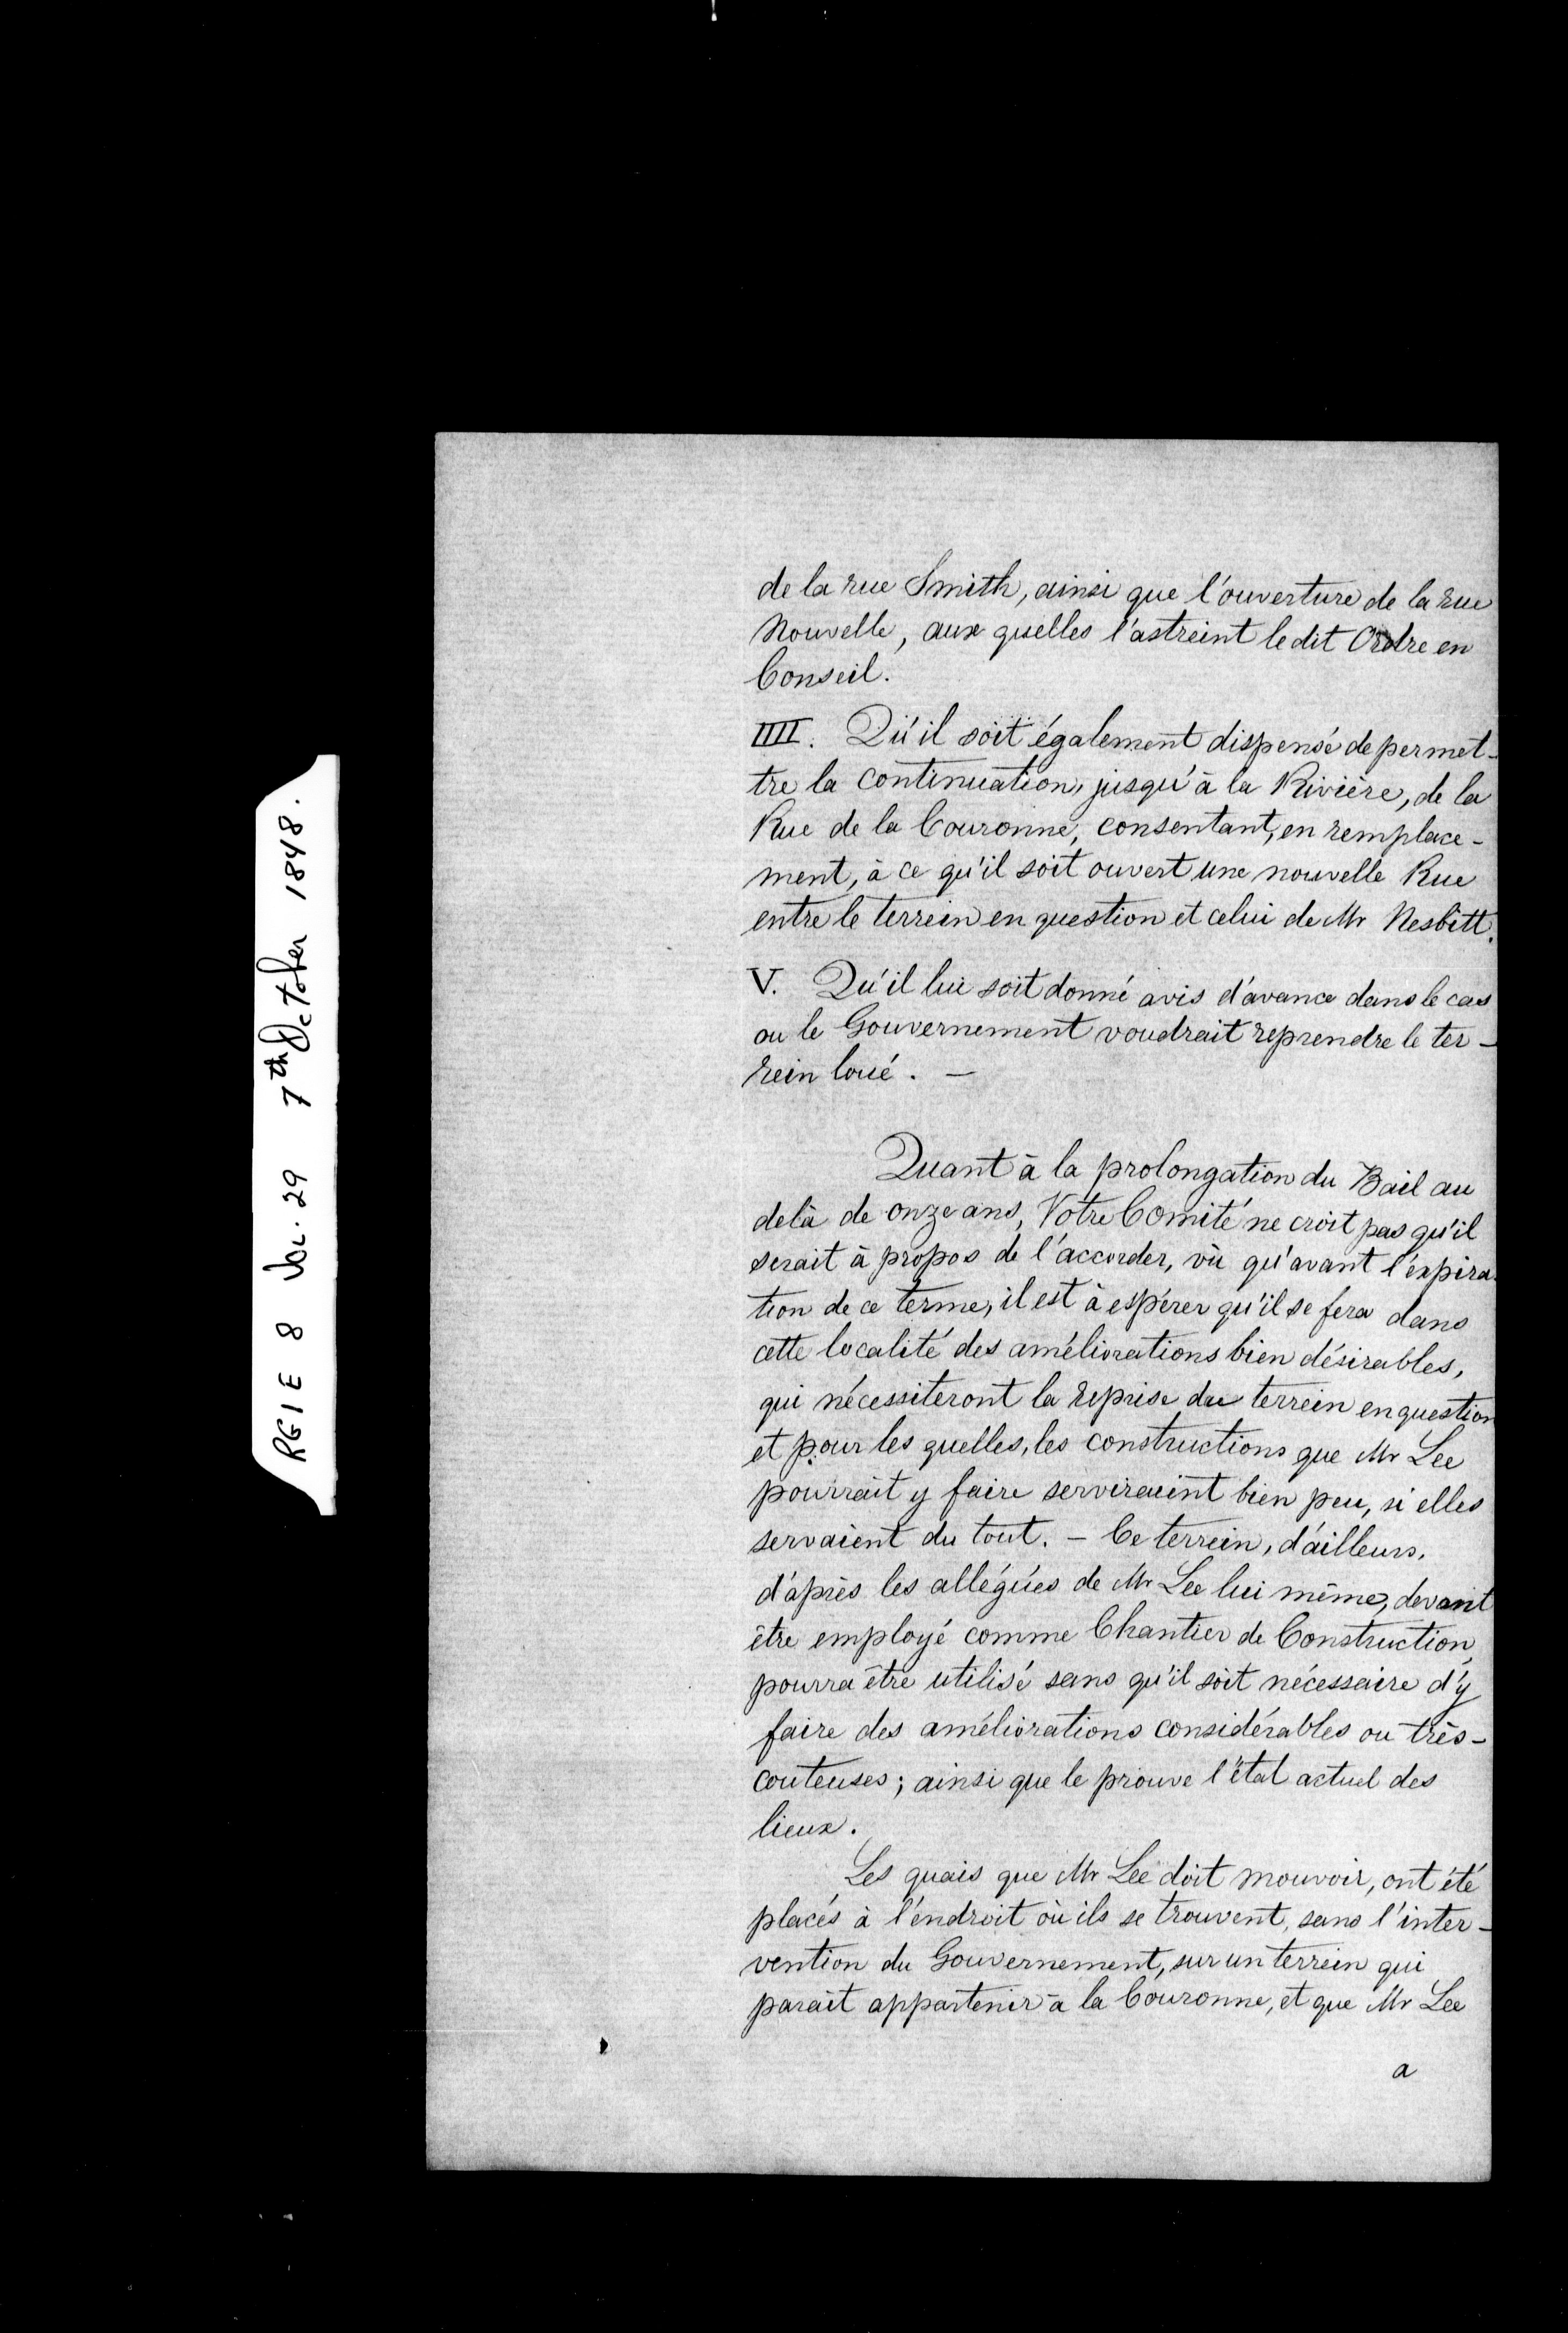 RG 1 E 8 Vol. 29 7th October 1848.
de la rue Smith, ainsi que l'ouverture de la rue
Nouvelle, aux quelles l'astreint le dit Ordre en
Conseil.
IIII. Qu'il soit également dispensé de permet-
tre la continuation, jusqu'à la Rivière, de la
Rue de la Couronne, consentant, en remplace-
ment, à ce qu'il soit ouvert une nouvelle Rue
entre le terrein en question et celui de Mr Nesbitt.
V. Qu'il lui soit donné avis d'avance dans le cas
ou le Gouvernement voudrait reprendre le ter-
rein loué. —
Quant à la prolongation du Bail au
delà de onze ans, Votre Comité ne croit pas qu'il
serait à propos de l'accorder, vû qu'avant l'expira-
tion de ce terme, il est à espérer qu'il se fera dans
cette localité des améliorations bien désirables,
qui nécessiteront la reprise du terrein en question
et pour les quelles, les constructions que Mr Lee
pourrait y faire serviraient bien peu, si elles
servaient du tout. — Ce terrein, d'ailleurs,
d'après les allégués de Mr Lee lui même, devant
être employé comme Chantier de Construction,
pourra être utilisé sans qu'il soit nécessaire d'y
faire des améliorations considérables ou très-
couteuses; ainsi que le prouve l'état actuel des
lieux.
Les quais que Mr Lee doit mouvoir, ont été
placés à l'endroit où ils se trouvent, sans l'inter-
vention du Gouvernement, sur un terrein qui
parait appartenir à la Couronne, et que Mr Lee
a